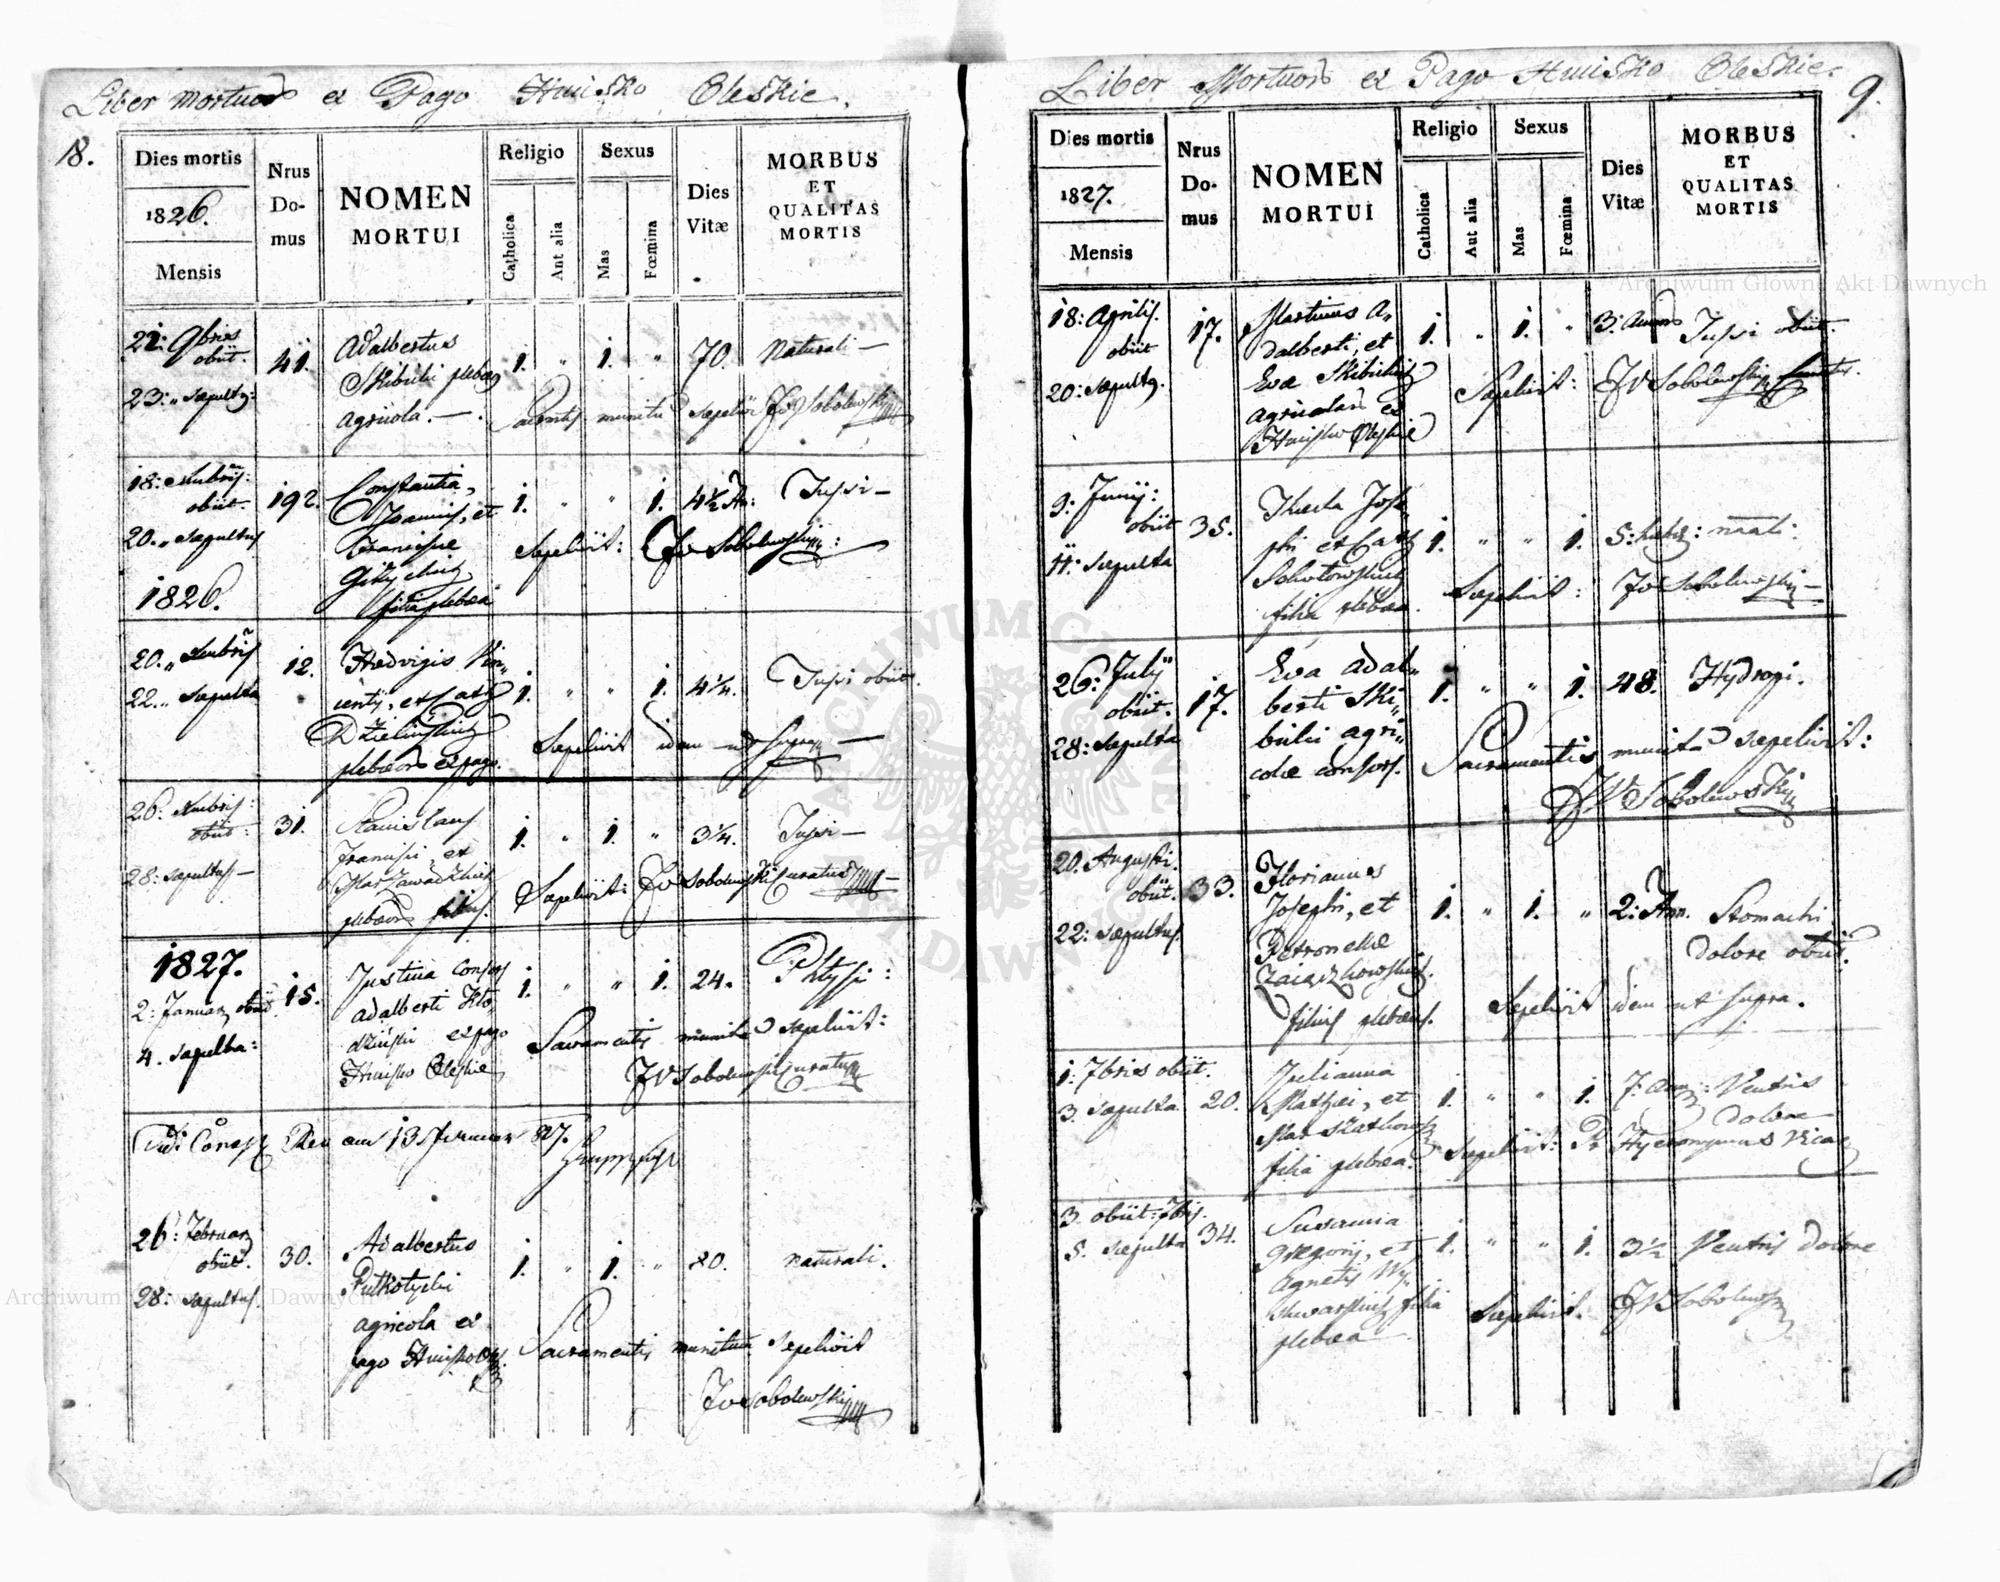 Liber Mortuor ex Pago Huisko Oleskie.
18.
Dies mortis
1826.
Mensis
Nrus Do- mus
NOMEN MORTUI
Religio
Catholica
Aut alia
Sexus
Mas
Fœmina
Dies Vitæ
MORBUS ET QUALITAS MORTIS
21: 9bris
obiit.
23: „ sepultg:
41.
Adalbertus
Skibicki plebeg
agricola. —
1. „ 1. „ 70. naturali —
munitu sepeliv JvSobolewski
18: Xmbris:
obiit.
20. „ sepultus
1826.
192.
Constantia,
Joannis, et
Francisce
filia plebea
1. „ „ 1. 4½ An: Tussi —
Sepelivit: JvSobolewski:
20. „ Xmbris
22. „ sepulta
12.
Hedvigis Vin„
centij, et Cath
Dzieliński
plebeor ex pago.
1. „ „ 1. 4¼. Tussi obiit.
Sepelivit idem ut supra —
26: Xmbris:
obiit:
28: sepultus —
31.
Stanislaus
Francisci, et
Mar Zawadzki
plebeor filius.
1. „ 1. „ 3¼. Tussi —
Sepelivit: JvSobolewski Curatus
1827.
2: Januar obiit
4. sepulta:
15.
Justina consors
Adalberti Kło„
dziński ex pago
Huisko Oleskie
1. „ „ 1. 24. Phtysi:
Sacramentis munita sepelivit:
JVSobolewski Curatus
13 Januar 827.
26: Februar
obiit.
28: sepultus.
30.
Adalbertus
Putkotycki
agricola ex
pago Huisko Oles.
1. „ 1. „ 80. naturali.
Sacramentis munitum sepelivit
JvSobolewski
Liber Mortuor ex Pago Huisko Oleskie.
9.
Dies mortis
1827.
Mensis
Nrus Do- mus
NOMEN MORTUI
Religio
Catholica
Aut alia
Sexus
Mas
Fœmina
Dies Vitæ
MORBUS ET QUALITAS MORTIS
18: Aprilis.
obiit
20: sepultg.
17.
Martinus A„
dalberti, et
Eva Skibickig
agricolar ex
Huisko Oleskie
1. „ 1. „ 3: annor Tussi obiit.
Sepelivit: JVSobolewski
9: Junij:
obiit
11: sepulta
35.
Thecla Jose„
phi et Cath
Sokołowskich
filia plebea.
1. „ „ 1. 5: naāli:
Sepelivit: JvSobolewski —
26: Julij
obiit.
28: sepulta
17.
Eva Adal„
berti Ski„
bicki agri„
colæ consors.
1. „ „ 1. 48. Hydropi.
Sacramentis munita sepelivit:
JVSobolewski
20. Augusti.
obiit.
22: sepultus.
33.
Florianus
Josephi, et
Petronellæ
Zaiązkowski.
filius plebeus.
1. „ 1. „ 2: Ann. Stomachi
dolore obiit.
Sepelivit idem ut supra.
1: 7bris obiit.
3. sepulta
20.
Julianna
Mathei, et
filia plebea.
1. „ „ 1. 7: ann: Ventris
dolore
Sepelivit: Pr Hyeronymus Vicar
3. obiit: 7bris.
5. sepulta
34.
Susanna
Gregorij, et
Agnetis Wy„
filia
plebea
1. „ „ 1. 3½ Ventris dolore
Sepelivit. JVSobolewski
Archiwum Główne Akt Dawnych